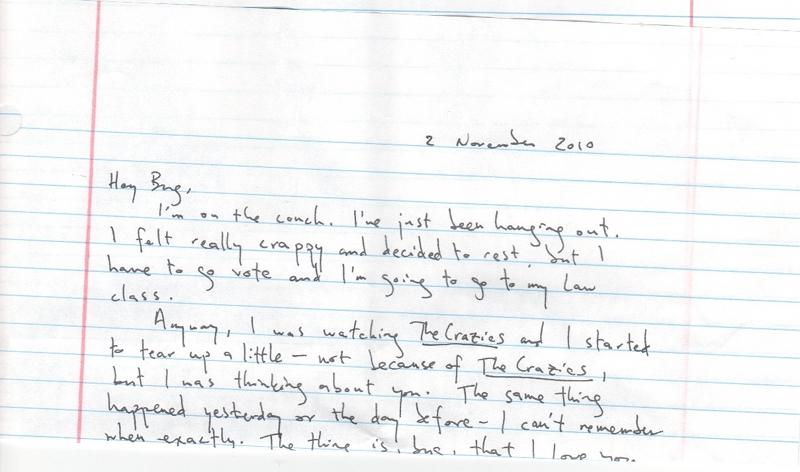 2 November 2010
Hey Bug,
I'm on the couch. I've just been hanging out.
I felt really crappy and decided to rest, but I
have to go vote and I'm going to go to my Law
class.
Anyway, I was watching The Crazies and I started
to tear up a little – not because of The Crazies,
but I was thinking about you. The same thing
happened yesterday or the day before – I can't remember
when exactly. The thing is, bug, that I love you.